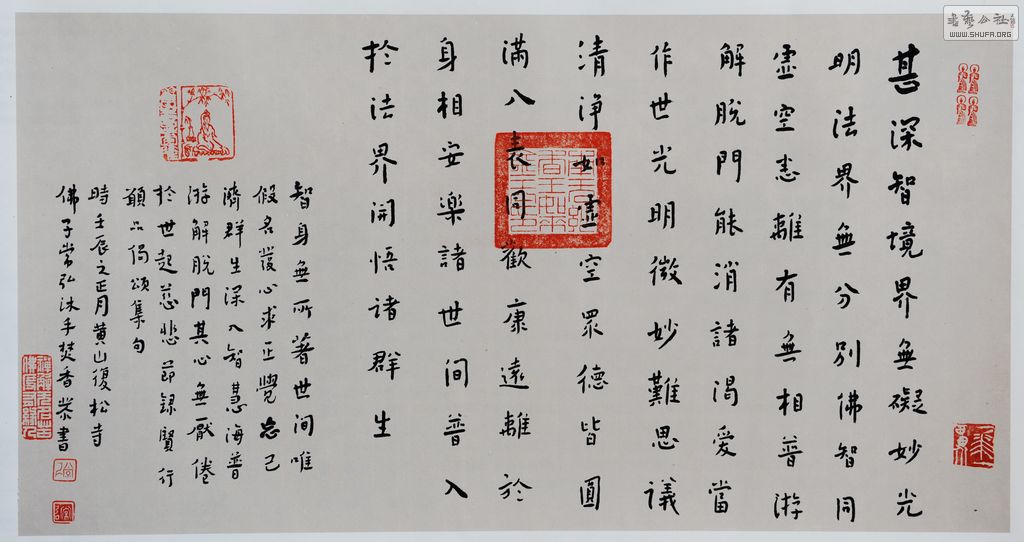 甚深智境界無礙妙光
明法界無分別佛智同
虛空悉離有無相普游
解脫門能消諸渴爱當
作世光明微妙難思議
清淨如虛空眾德皆圓
滿八表同歡康遠離於
身相安樂諸世间普入
於法界開悟诸群生
智身無所著世间唯
假名發心求正覺忘己
濟群生深入智慧海普
游解脫門其心無厭倦
於世起慈悲節録賢行
願品偈頌集句
時壬辰之正月黄山復松寺
佛子常弘沐手焚香恭書
書藝公社
WWW.SHUFA.ORG